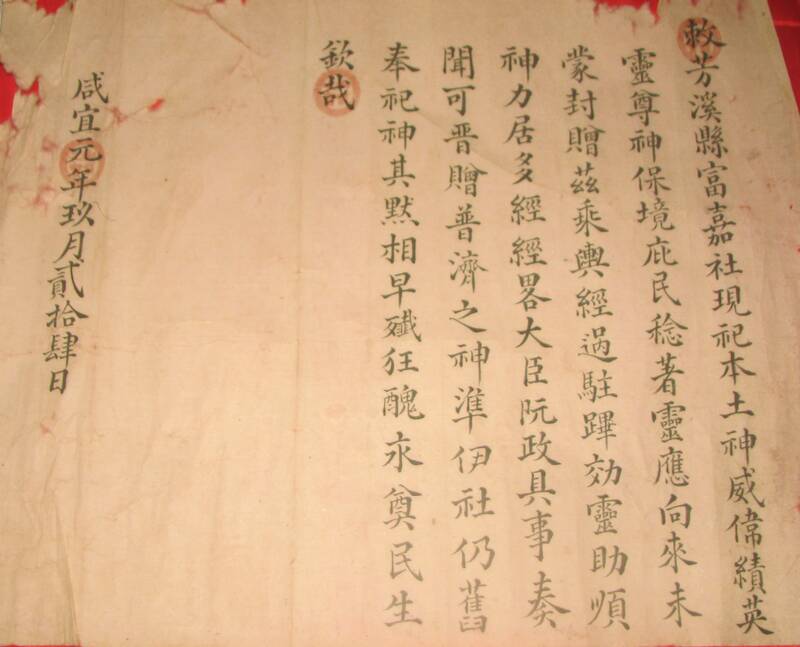 敕芳溪縣富嘉社現祀本土神威偉績英
靈尊神保境庇民稔著靈應向來未
蒙封贈茲乘輿經過駐蹕効靈助順
神力居多經經畧大臣阮政具事奏
聞可晋贈普濟之神準伊社仍舊
奉祀神其黙相早殲狂醜永奠民生
欽哉
咸宜元年玖月貳拾肆日